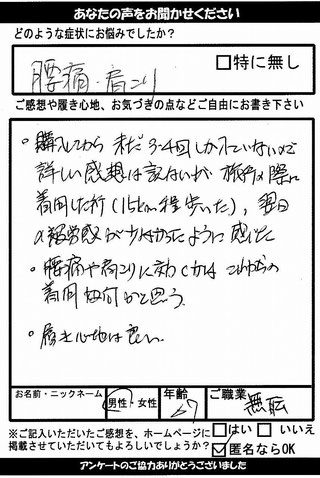 あなたの声をお聞かせください
どのような症状にお悩みでしたか？
腰痛・肩こり
□特に無し
ご感想や履き心地、お気づきの点などご自由にお書き下さい
・購入してから未だ3-4回しかはいていないので
詳しい感想は言えないが 旅行の際に
着用した所(15km程歩いた)、翌日
の疲労感が少なかったように感じた
・腰痛や肩こりに効くかはこれからの
着用如何かと思う。
・履き心地は良い。
お名前・ニックネーム
男性・女性
年齢
67
ご職業
無職
※ご記入いただいたご感想を、ホームページに
掲載させていただいてもよろしいでしょうか？
□はい □いいえ
☑匿名ならOK
アンケートのご協力ありがとうございました